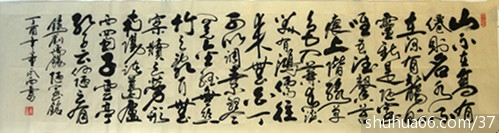 山不在高有
仙則名水不
在深有龍則
靈斯是陋室
唯吾德馨苔
痕上階綠草
色入簾青談
笑有鴻儒往
來無白丁可
以調素琴
閱金經無絲
竹之亂耳無
案牘之勞形
南陽諸葛廬
西蜀子雲亭
孔子云何陋之有
劉禹錫陋室銘
丁酉年
shuhua66.com/37